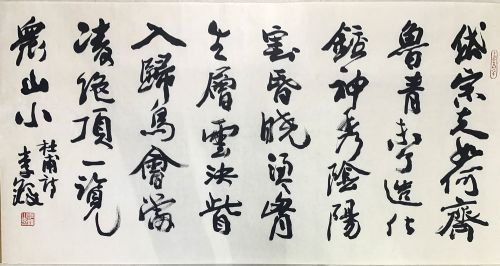 岱宗夫如何齊
魯青未了造化
鍾神秀陰陽
割昏曉盪胷
生層雲決眥
入歸鳥會當
凌絶頂一覽
衆山小
杜甫詩
李